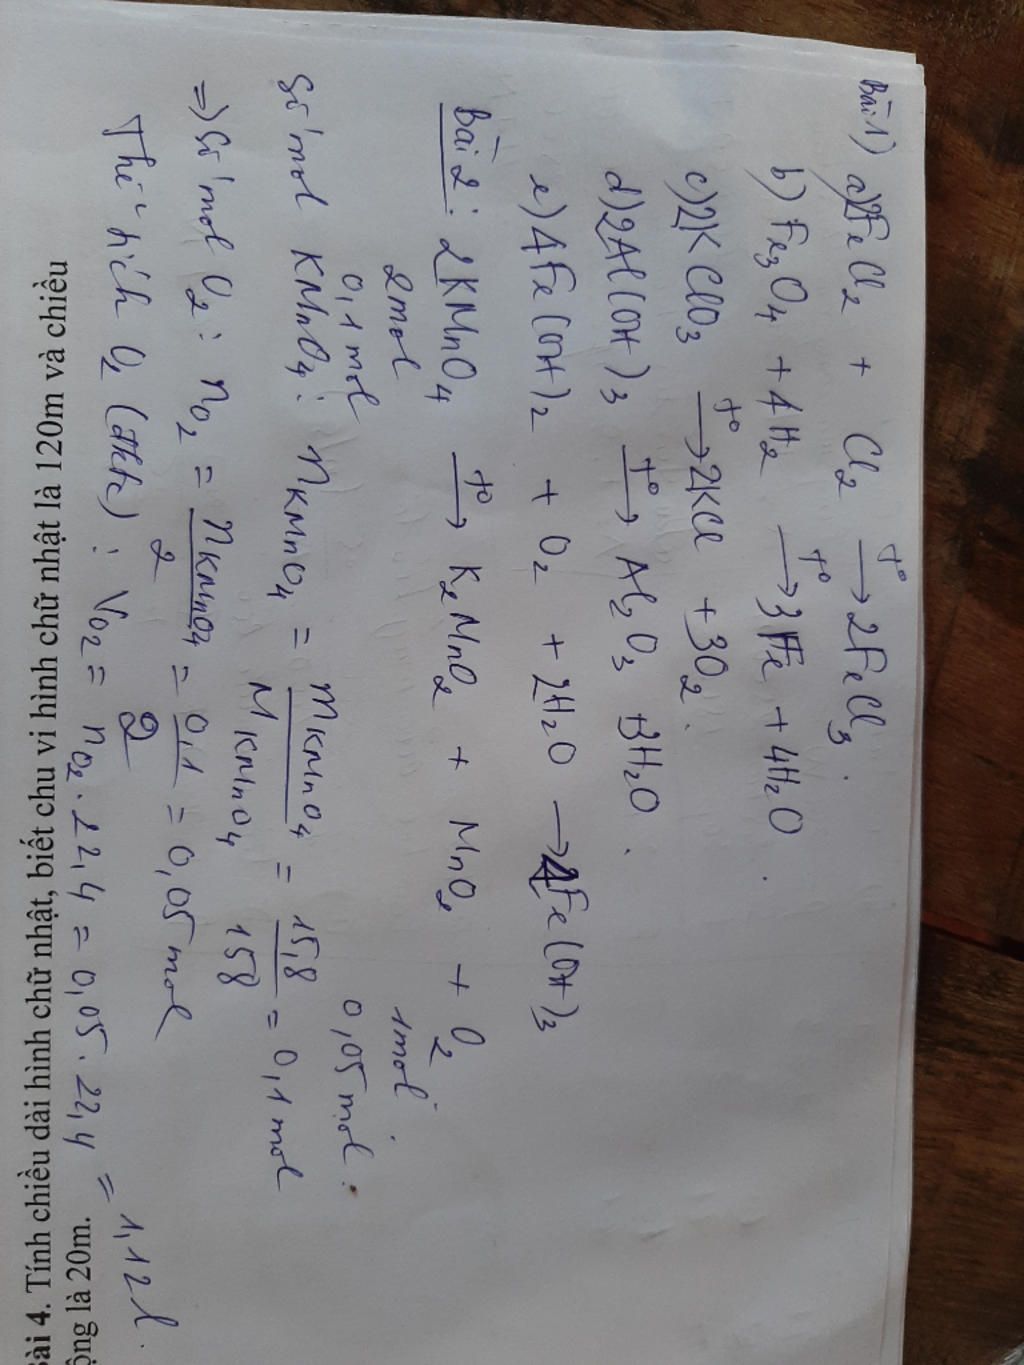 Bài 1) a) 2FeCl₂ + Cl₂ –t°→ 2FeCl₃.
b) Fe₃O₄ + 4H₂ –t°→ 3Fe + 4H₂O.
c) 2KClO₃ –t°→ 2KCl + 3O₂.
d) 2Al(OH)₃ –t°→ Al₂O₃ + 3H₂O.
e) 4Fe(OH)₂ + O₂ + 2H₂O → 4Fe(OH)₃
Bài 2: 2KMnO₄ –t°→ K₂MnO₂ + MnO₂ + O₂
2mol 1mol.
0,1mol 0,05mol.
Số mol KMnO₄: nKMnO₄ = mKMnO₄ / MKMnO₄ = 15,8 / 158 = 0,1mol
=> Số mol O₂: nO₂ = nKMnO₄ / 2 = 0,1 / 2 = 0,05mol
Thể tích O₂ (đktc): VO₂ = nO₂ . 22,4 = 0,05 . 22,4 = 1,12l.
Bài 4. Tính chiều dài hình chữ nhật, biết chu vi hình chữ nhật là 120m và chiều
ộng là 20m.